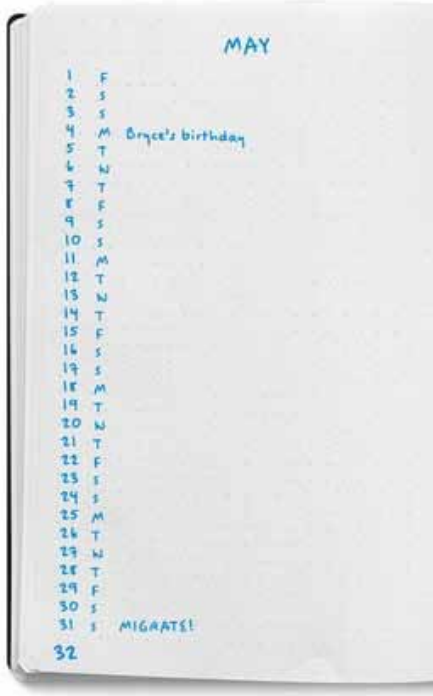 MAY
1 F
2 S
3 S
4 M Bryce's birthday
5 T
6 W
7 T
8 F
9 S
10 S
11 M
12 T
13 W
14 T
15 F
16 S
17 S
18 M
19 T
20 W
21 T
22 F
23 S
24 S
25 M
26 T
27 W
28 T
29 F
30 S
31 S MIGRATE!
32